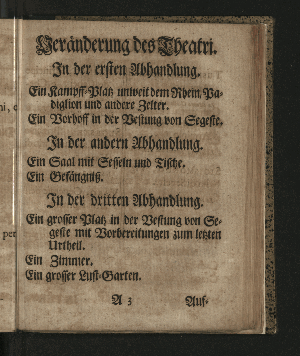 Veränderung des Theatri.
In der ersten Abhandlung.
Ein Kampff-Platz unweit dem Rhein, Pa-
diglion und andere Zelter.
Ein Vorhoff in der Vestung von Segeste.
In der andern Abhandlung.
Ein Saal mit Sesseln und Tische.
Ein Gefängniß.
In der dritten Abhandlung.
Ein grosser Platz in der Vestung von Se-
geste mit Vorbereitungen zum letzten
Urtheil.
Ein Zimmer.
Ein grosser Lust-Garten.
A 3 Auf-
per